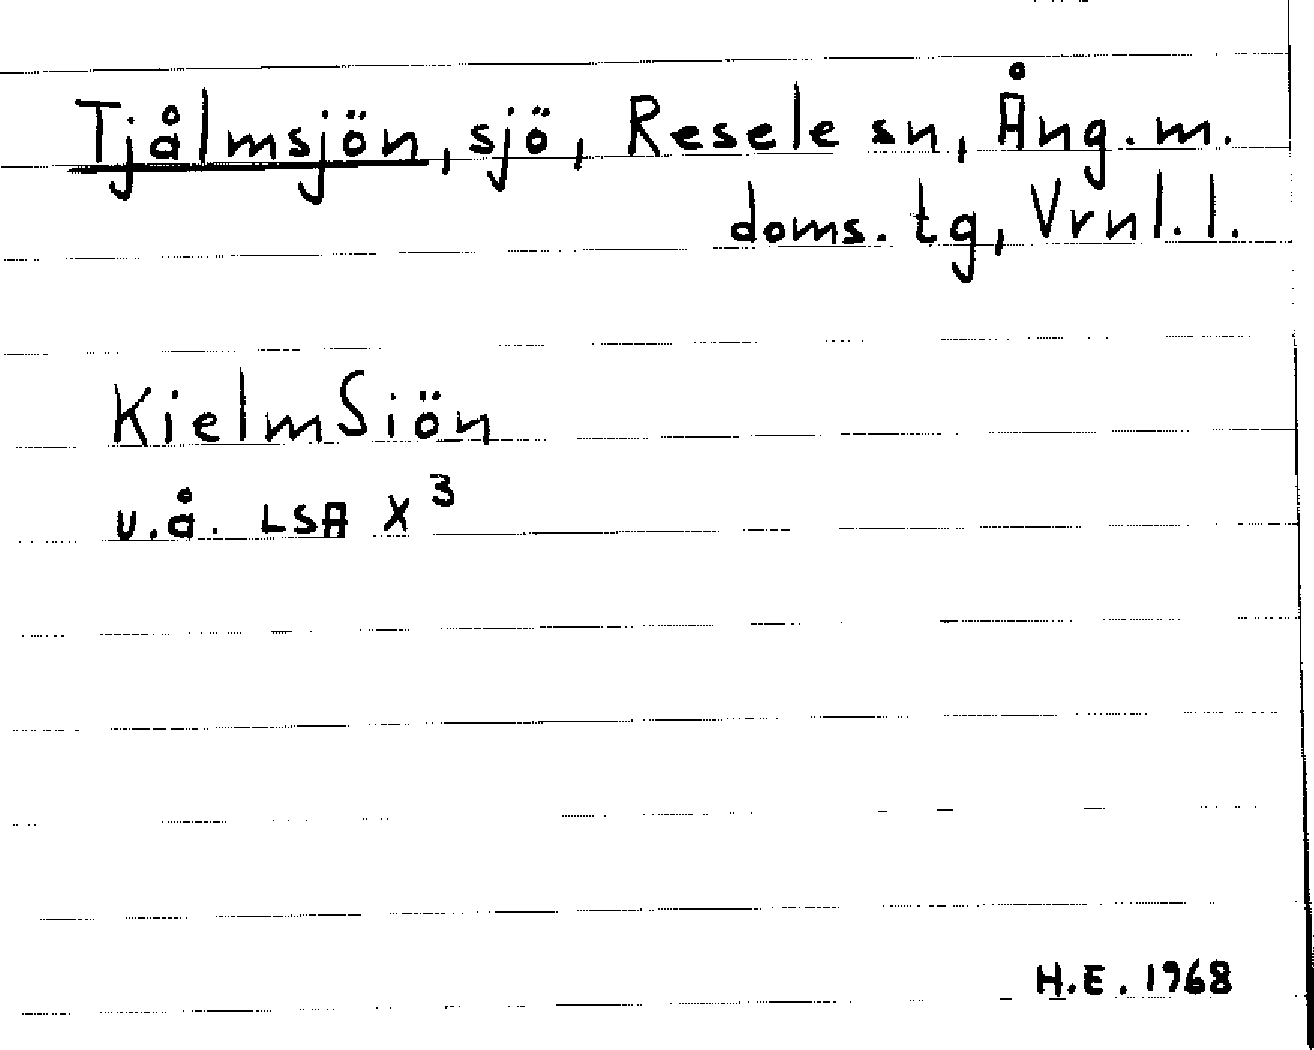 Tjålmsjön, sjö, Resele sn, Ång. m.
doms. tg, Vrnl. l.
KielmSiön
u.å. LSA X 3
H.E. 1968